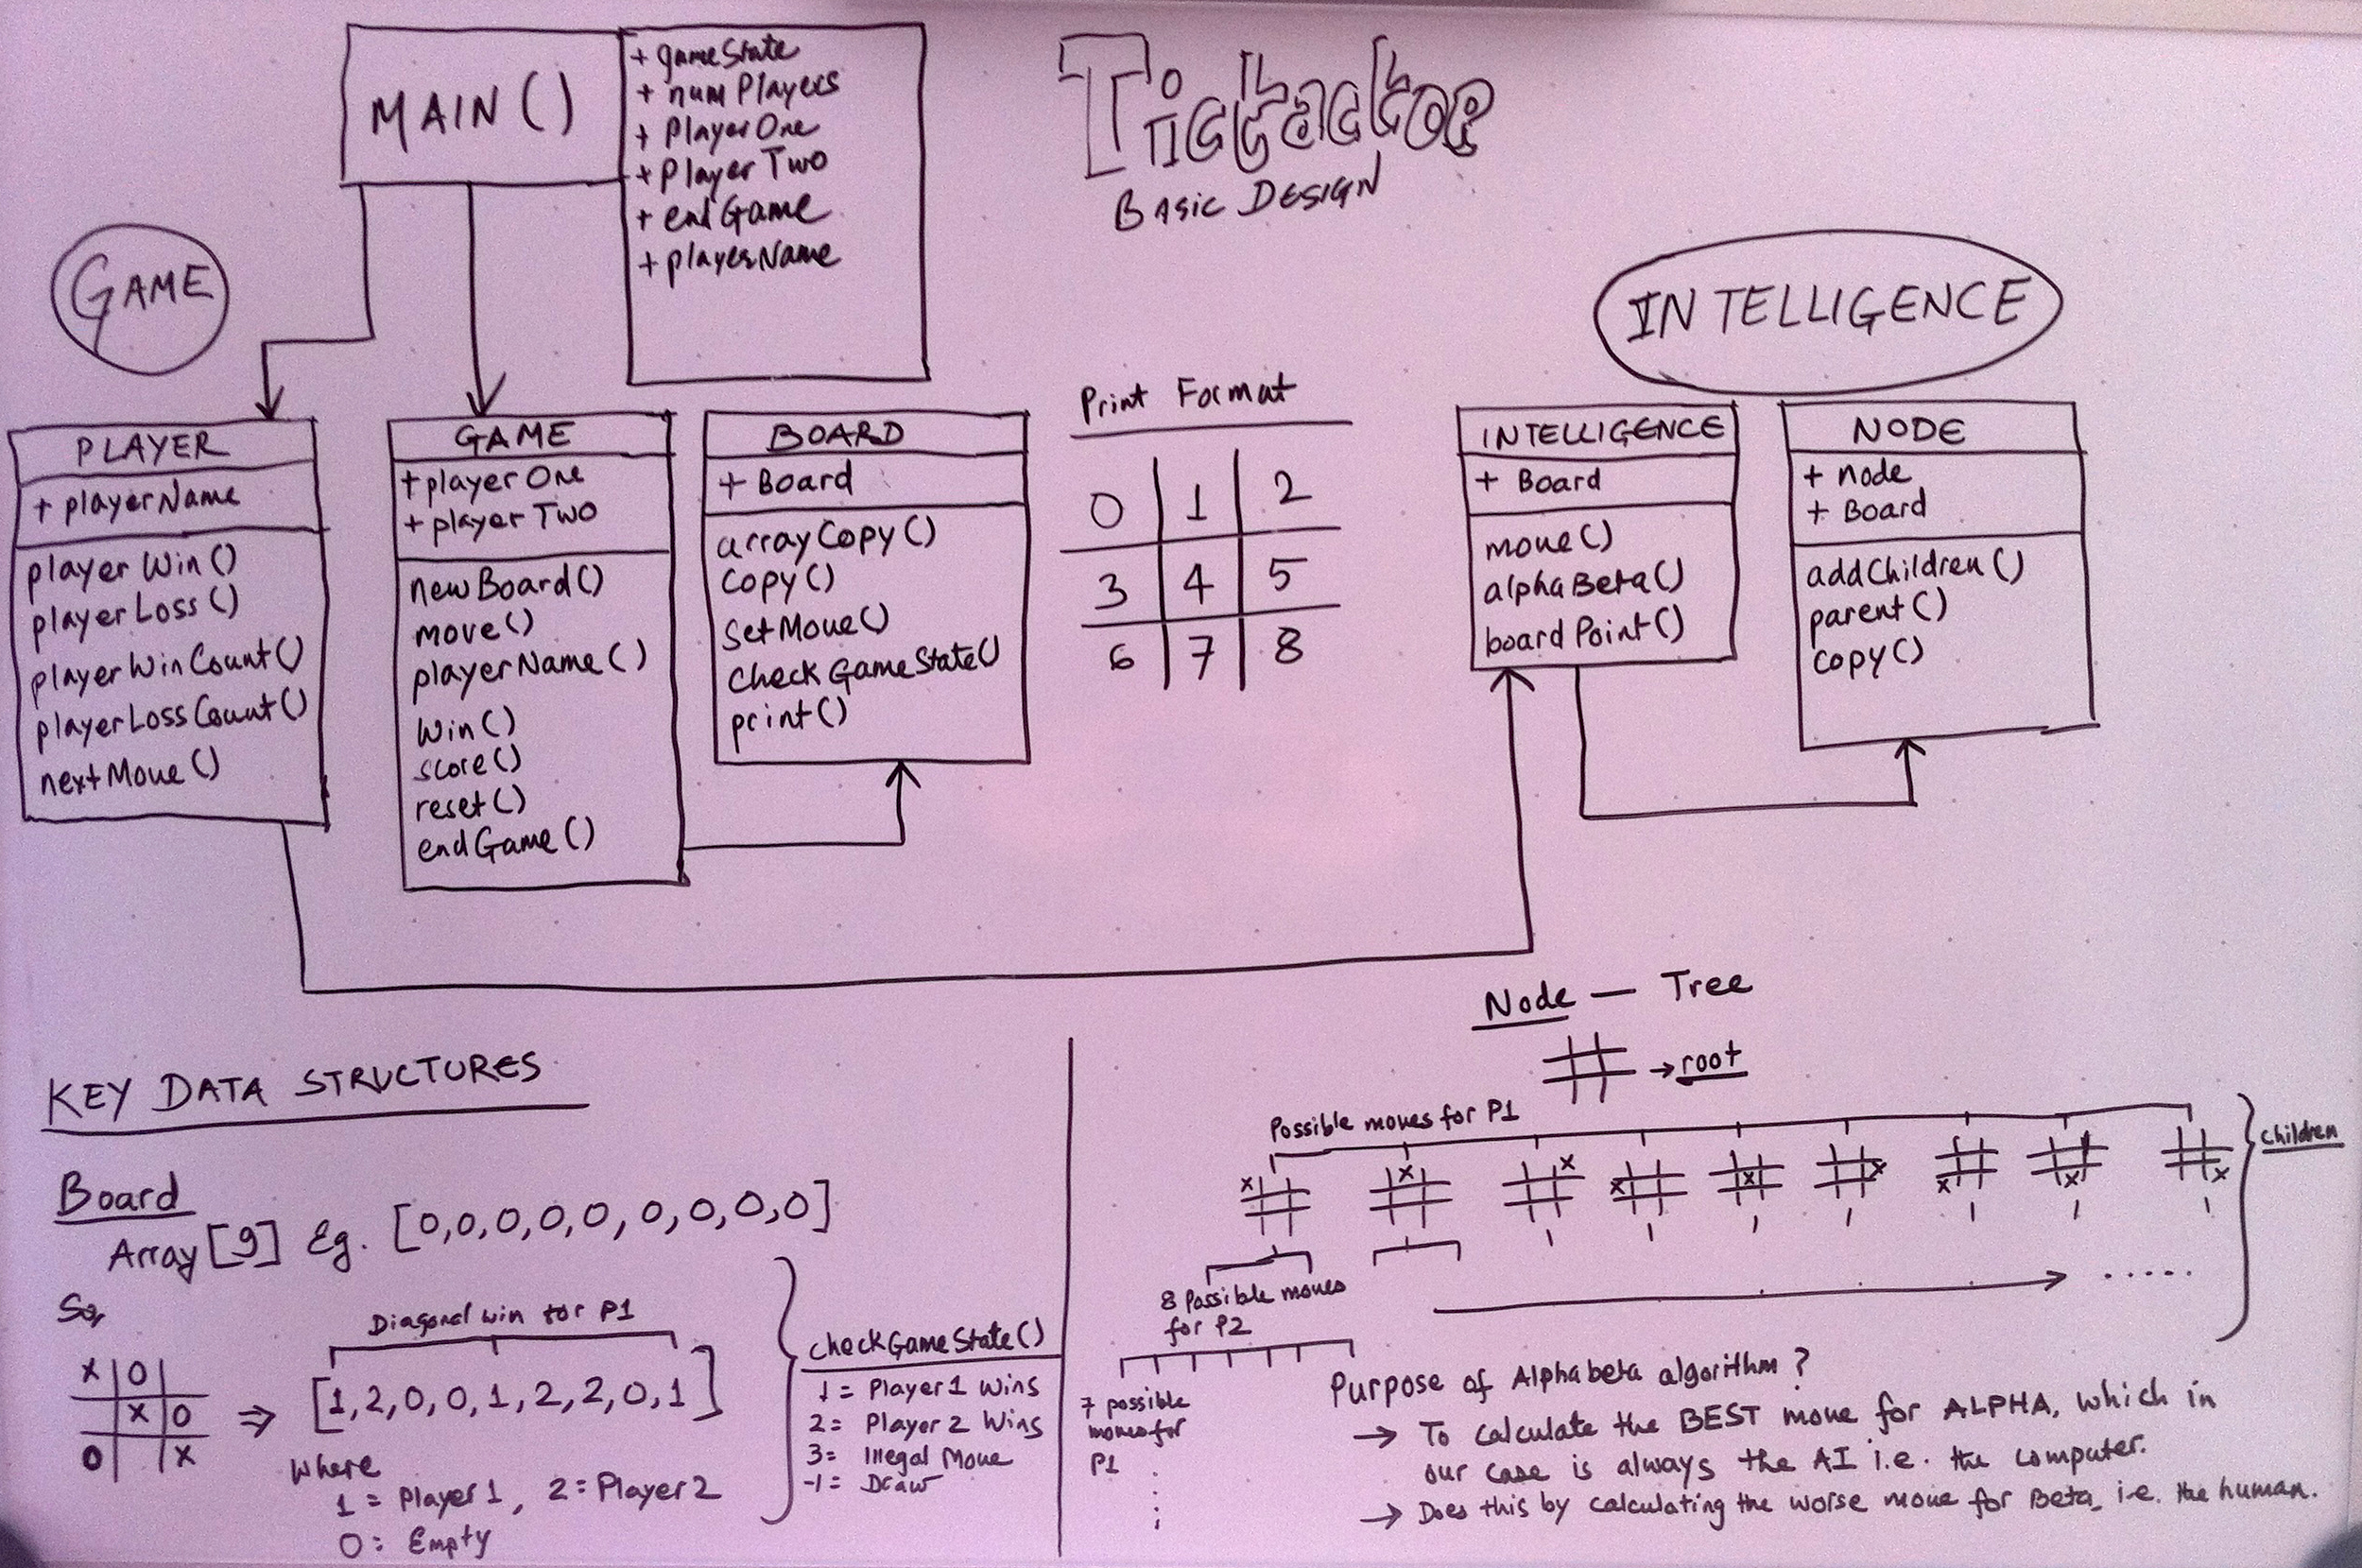 MAIN()
+ gameState
+ numPlayers
+ PlayerOne
+ PlayerTwo
+ endGame
+ playerName
Tictactoe
BASIC DESIGN
GAME
INTELLIGENCE
PLAYER
+ playerName
playerWin()
playerLoss()
playerWinCount()
playerLossCount()
nextMove()
GAME
+ playerOne
+ playerTwo
newBoard()
move()
playerName()
Win()
score()
reset()
endGame()
BOARD
+ Board
arrayCopy()
copy()
SetMove()
CheckGameState()
print()
Print Format
0 1 2
3 4 5
6 7 8
INTELLIGENCE
+ Board
move()
alphaBeta()
boardPoint()
NODE
+ node
+ Board
addChildren()
parent()
copy()
KEY DATA STRUCTURES
Board
Array [9] Eg. [0,0,0,0,0,0,0,0,0]
So,
Diagonal win for P1
X O
X O
O X
⇒ [1,2,0,0,1,2,2,0,1]
Where
1 = Player1, 2 = Player2
0 = Empty
checkGameState()
1 = Player1 Wins
2 = Player 2 Wins
3 = Illegal Move
-1 = Draw
Node — Tree
→ root
Possible moves for P1
x x x x x x x x x
Children
8 Possible moves
for P2
7 possible
moves for
P1
Purpose of Alphabeta algorithm?
→ To calculate the BEST move for ALPHA, which in
our case is always the AI i.e. the computer.
→ Does this by calculating the worse move for Beta, i.e. the human.